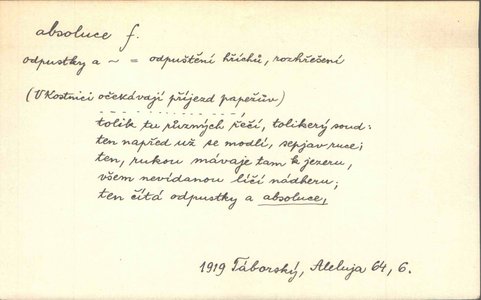 absoluce f.
odpustky a ~ = odpuštění hříchů, rozhřešení
(V Kostnici očekávají příjezd papežův)
tolik tu různých řečí, tolikerý soud:
ten napřed už se modlí, sepjav ruce;
ten, rukou mávaje tam k jezeru,
všem nevídanou líčí nádheru;
ten čítá odpustky a absoluce,
1919 Táborský, Aleluja 64, 6.